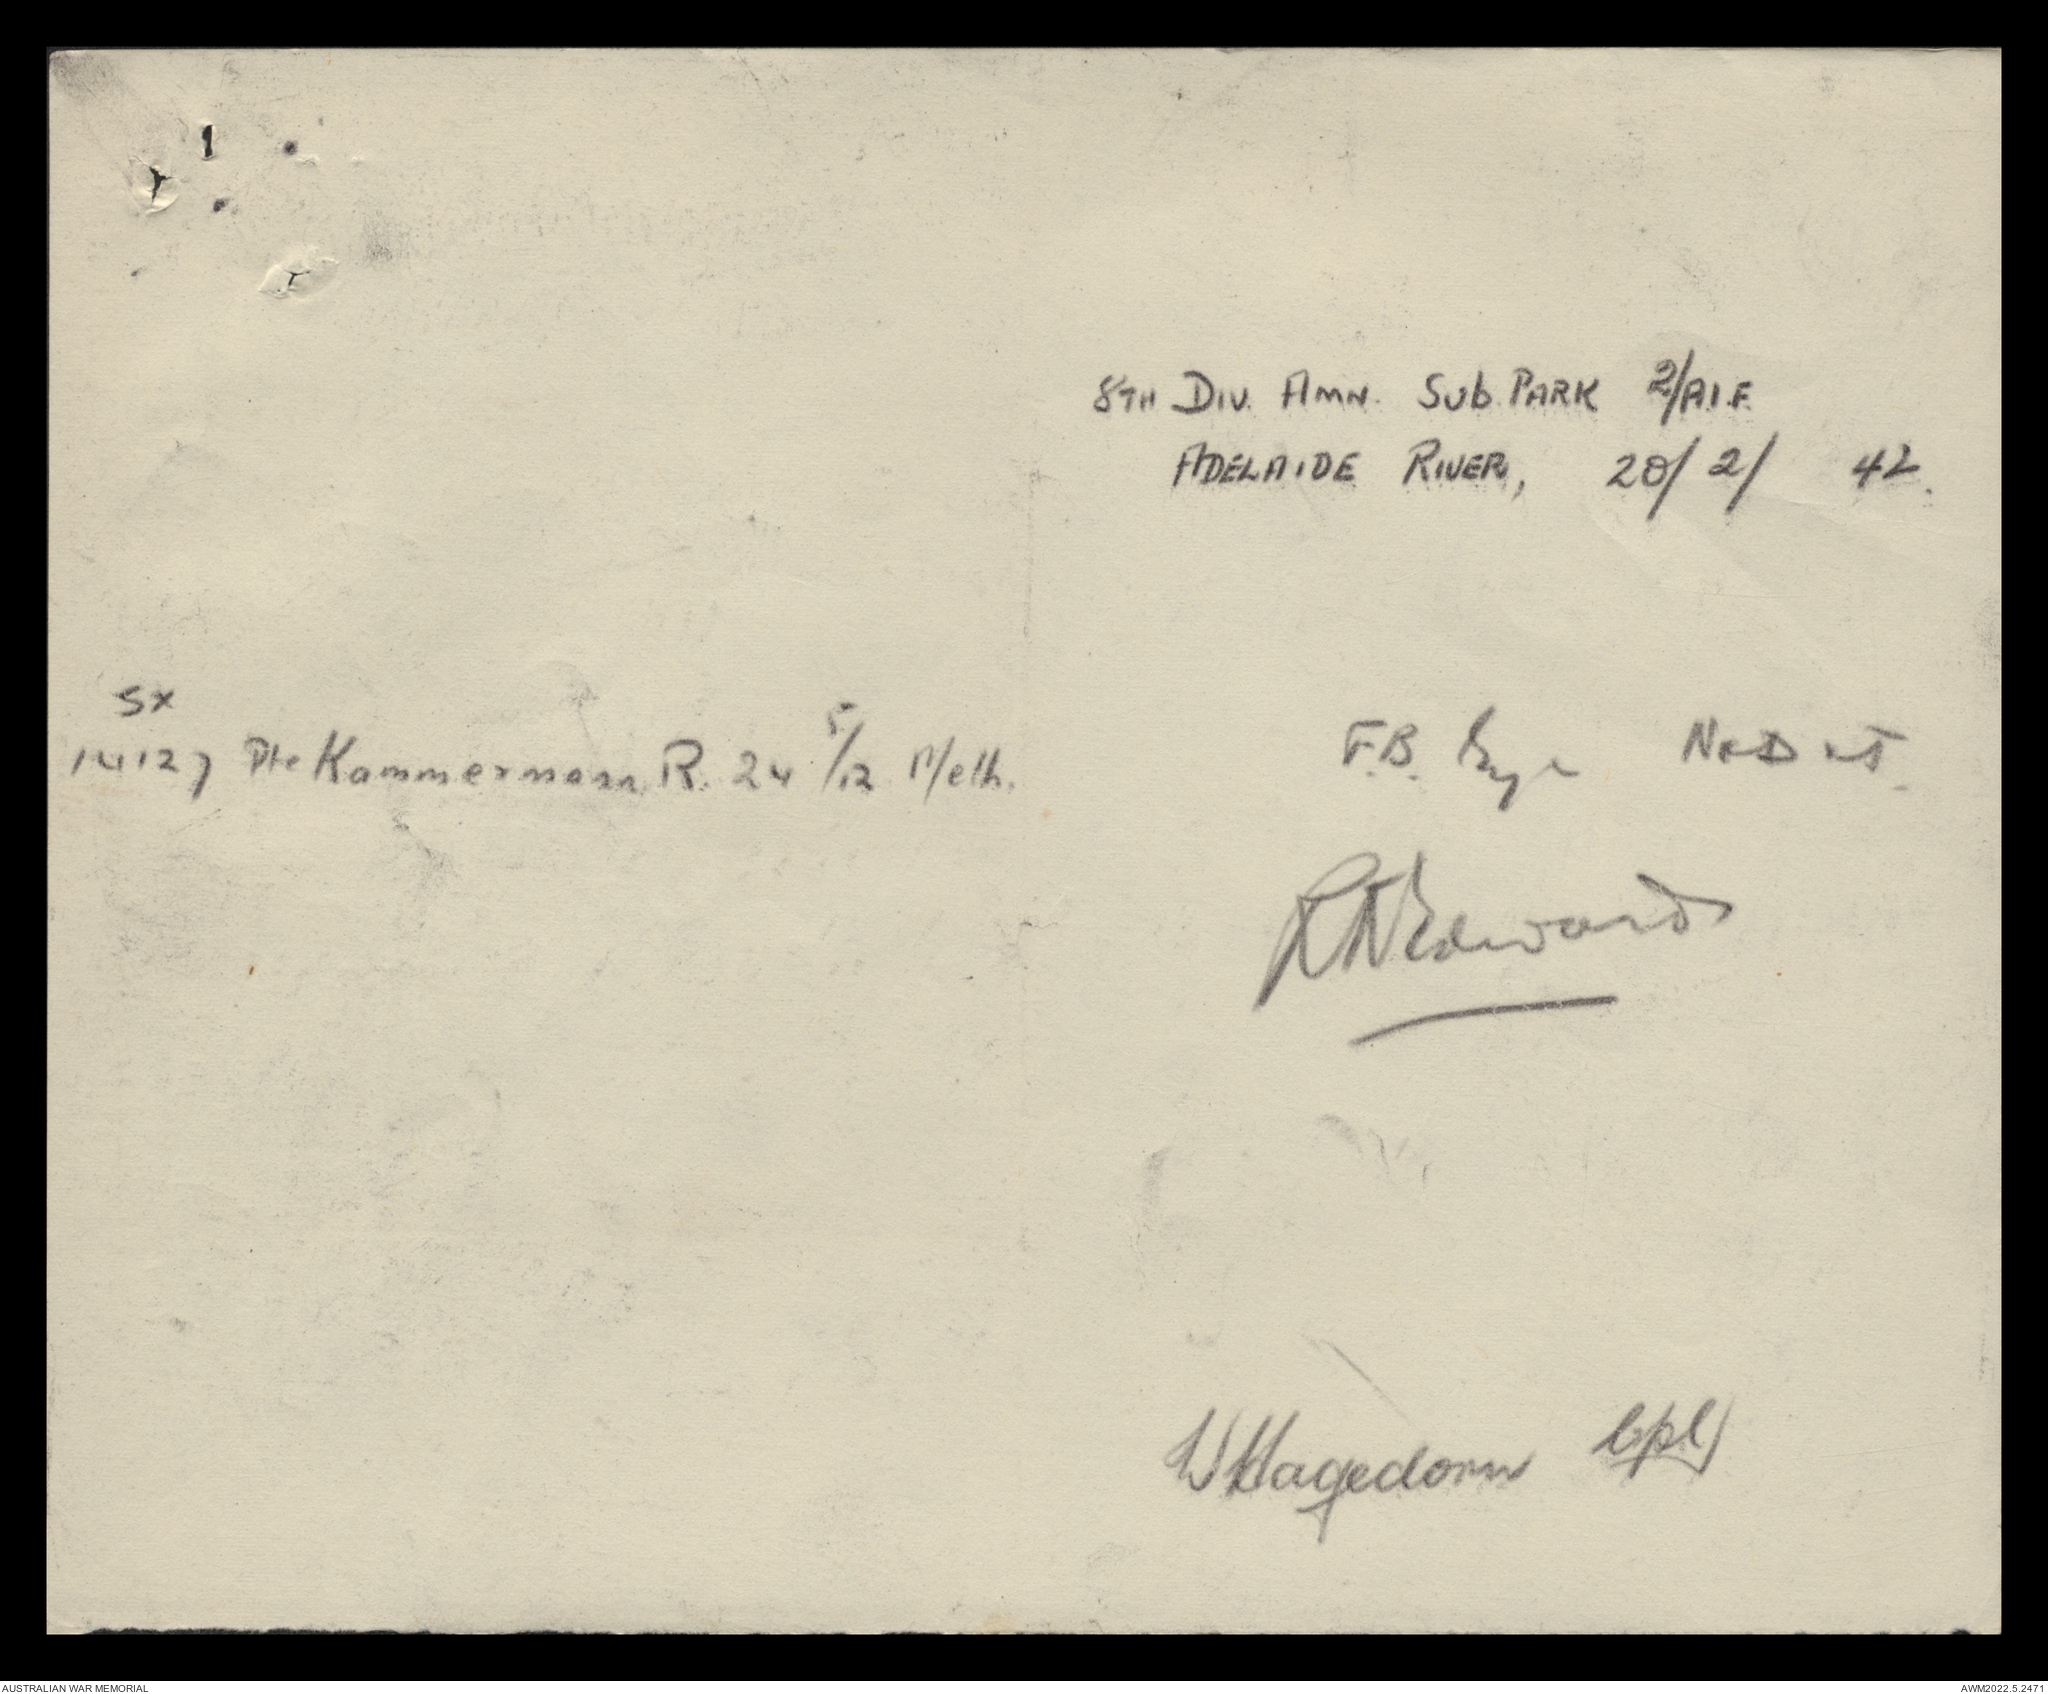 8TH DIV. AMN. SUB PARK 2/A.I.F.
ADELAIDE RIVER, 20/2/ 42.
SX
14127 Pte Kammermann R. 24 5/12 Meth.
F.B.
R Edwards
W Hagedorn Cpl
AUSTRALIAN WAR MEMORIAL
AWM2022.5.2471